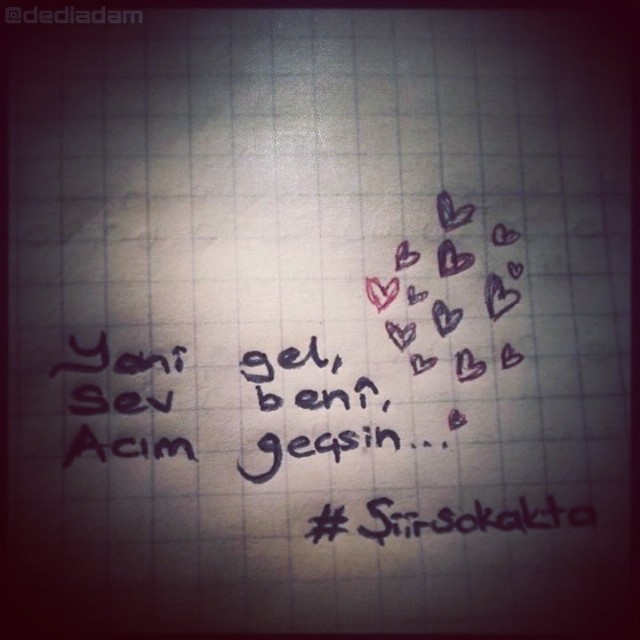 @dediadam
Yani gel,
Sev beni,
Acım geçsin...
#Şiirsokakta